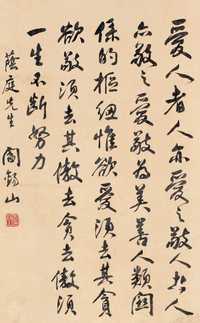 爱人者人亦爱之敬人者人
亦敬之爱敬为美善人类关
系的枢纽惟欲爱须去其贪
欲敬须去其傲去贪去傲须
一生不断努力
荫庭先生 阎锡山